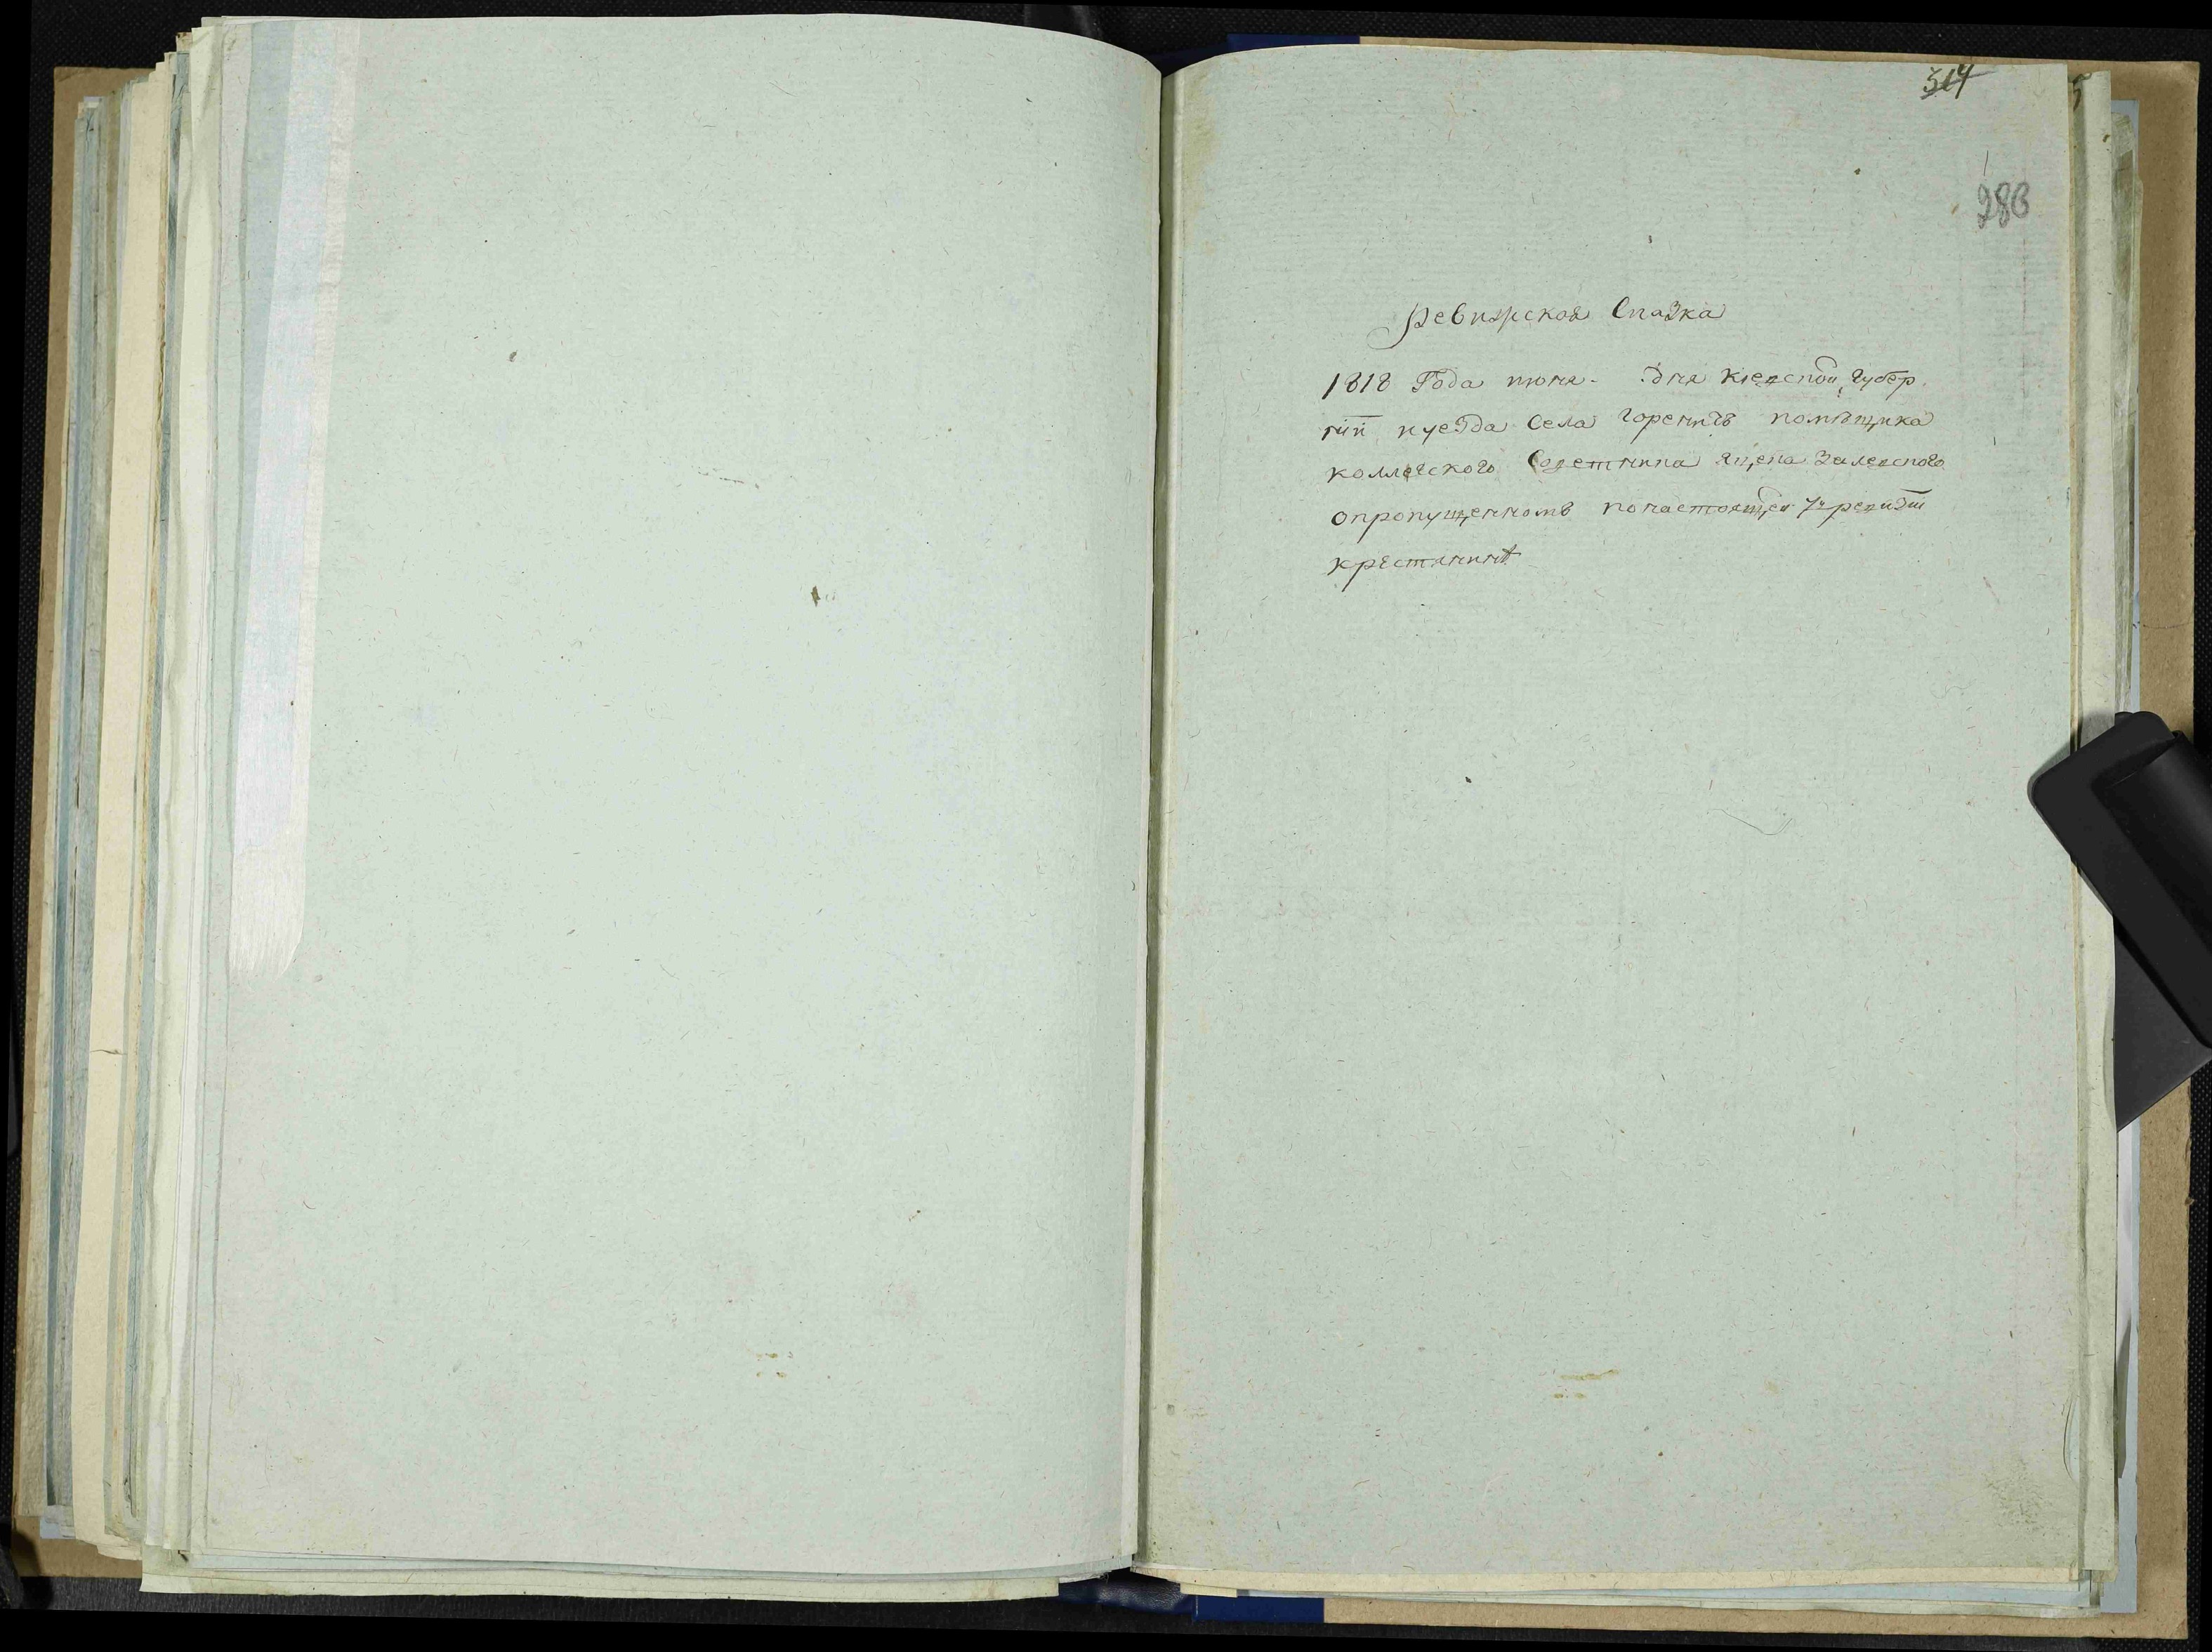 514
286
Ревижская Сказка
1818 Года июня. дня киевской губер
нїи и уезда Села Гореничъ помѣщика
коллегского Советника Яцента Залеского
опропущенномъ понастоящей 7й ревизїи
крестянинѣ